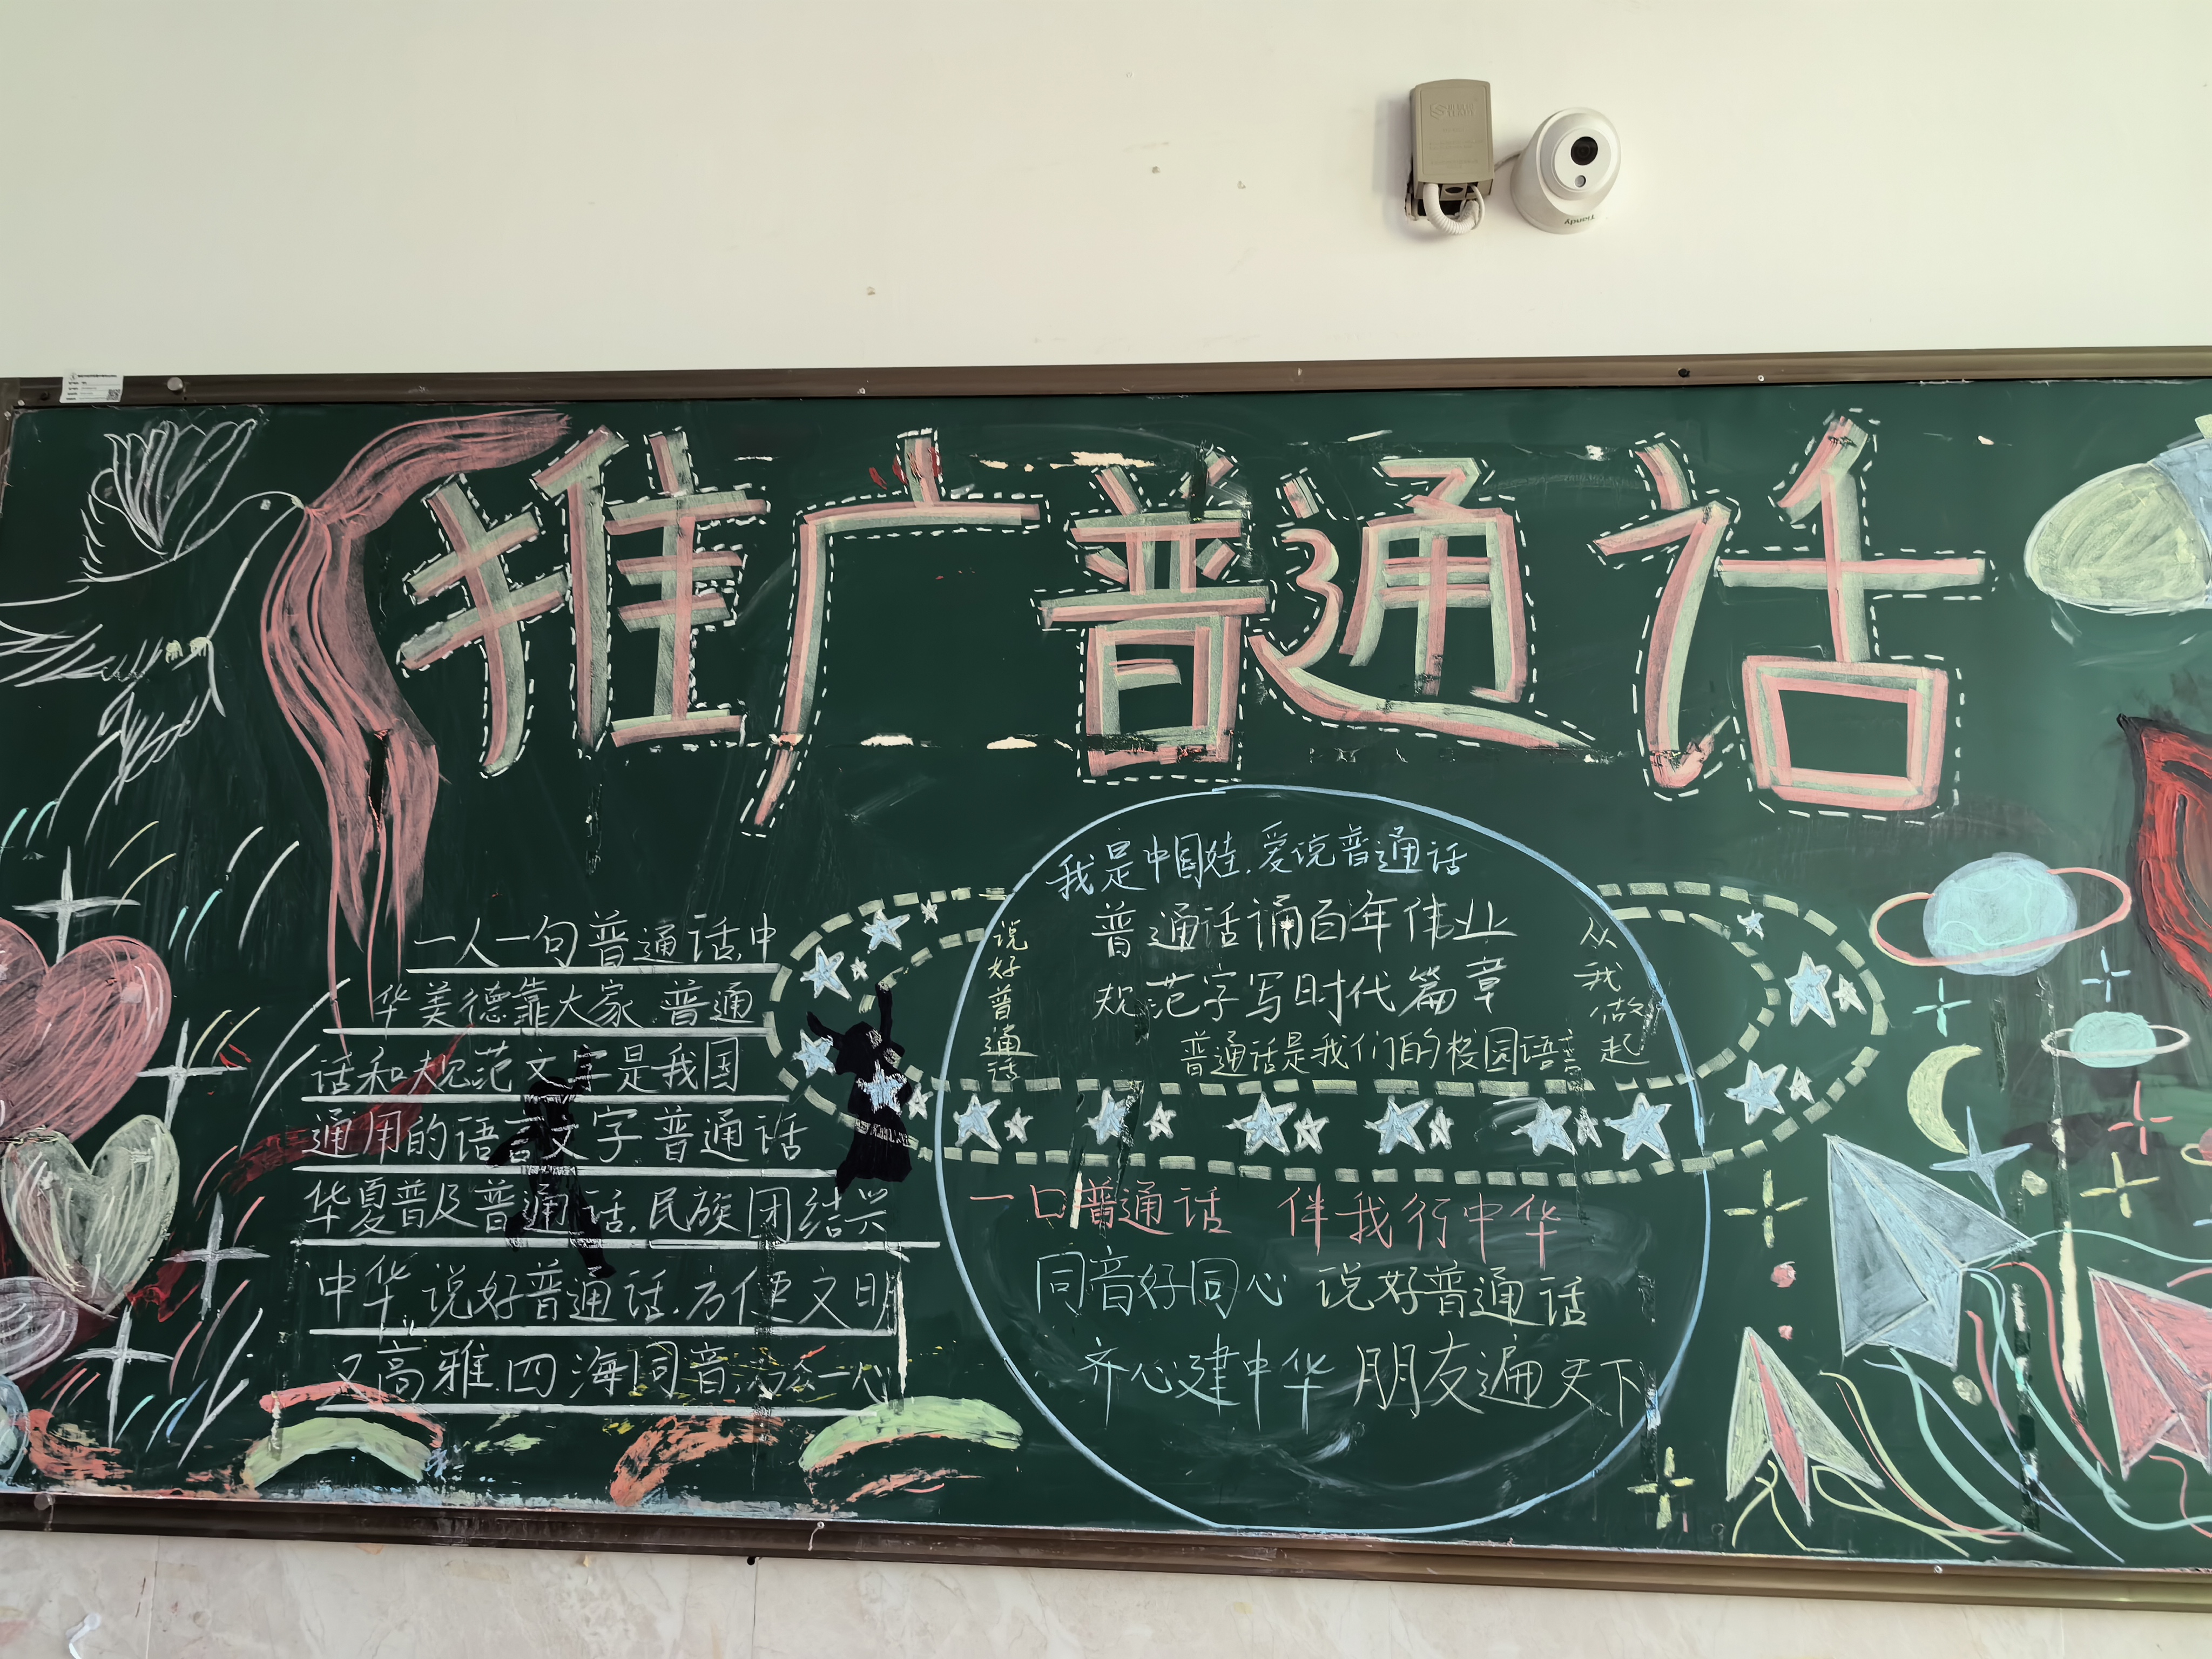 Tiandy
推广普通话
一人一句普通话,中
华美德靠大家.普通
话和规范文字是我国
通用的语言文字.普通话
华夏普及普通话.民族团结兴
中华.说好普通话.方便文明
又高雅.四海同音.万众一心
我是中国娃.爱说普通话
普通话诵百年伟业
规范字写时代篇章
普通话是我们的校园语言
说好普通话
从我做起
一口普通话 伴我行中华
同音好同心 说好普通话
齐心建中华 朋友遍天下